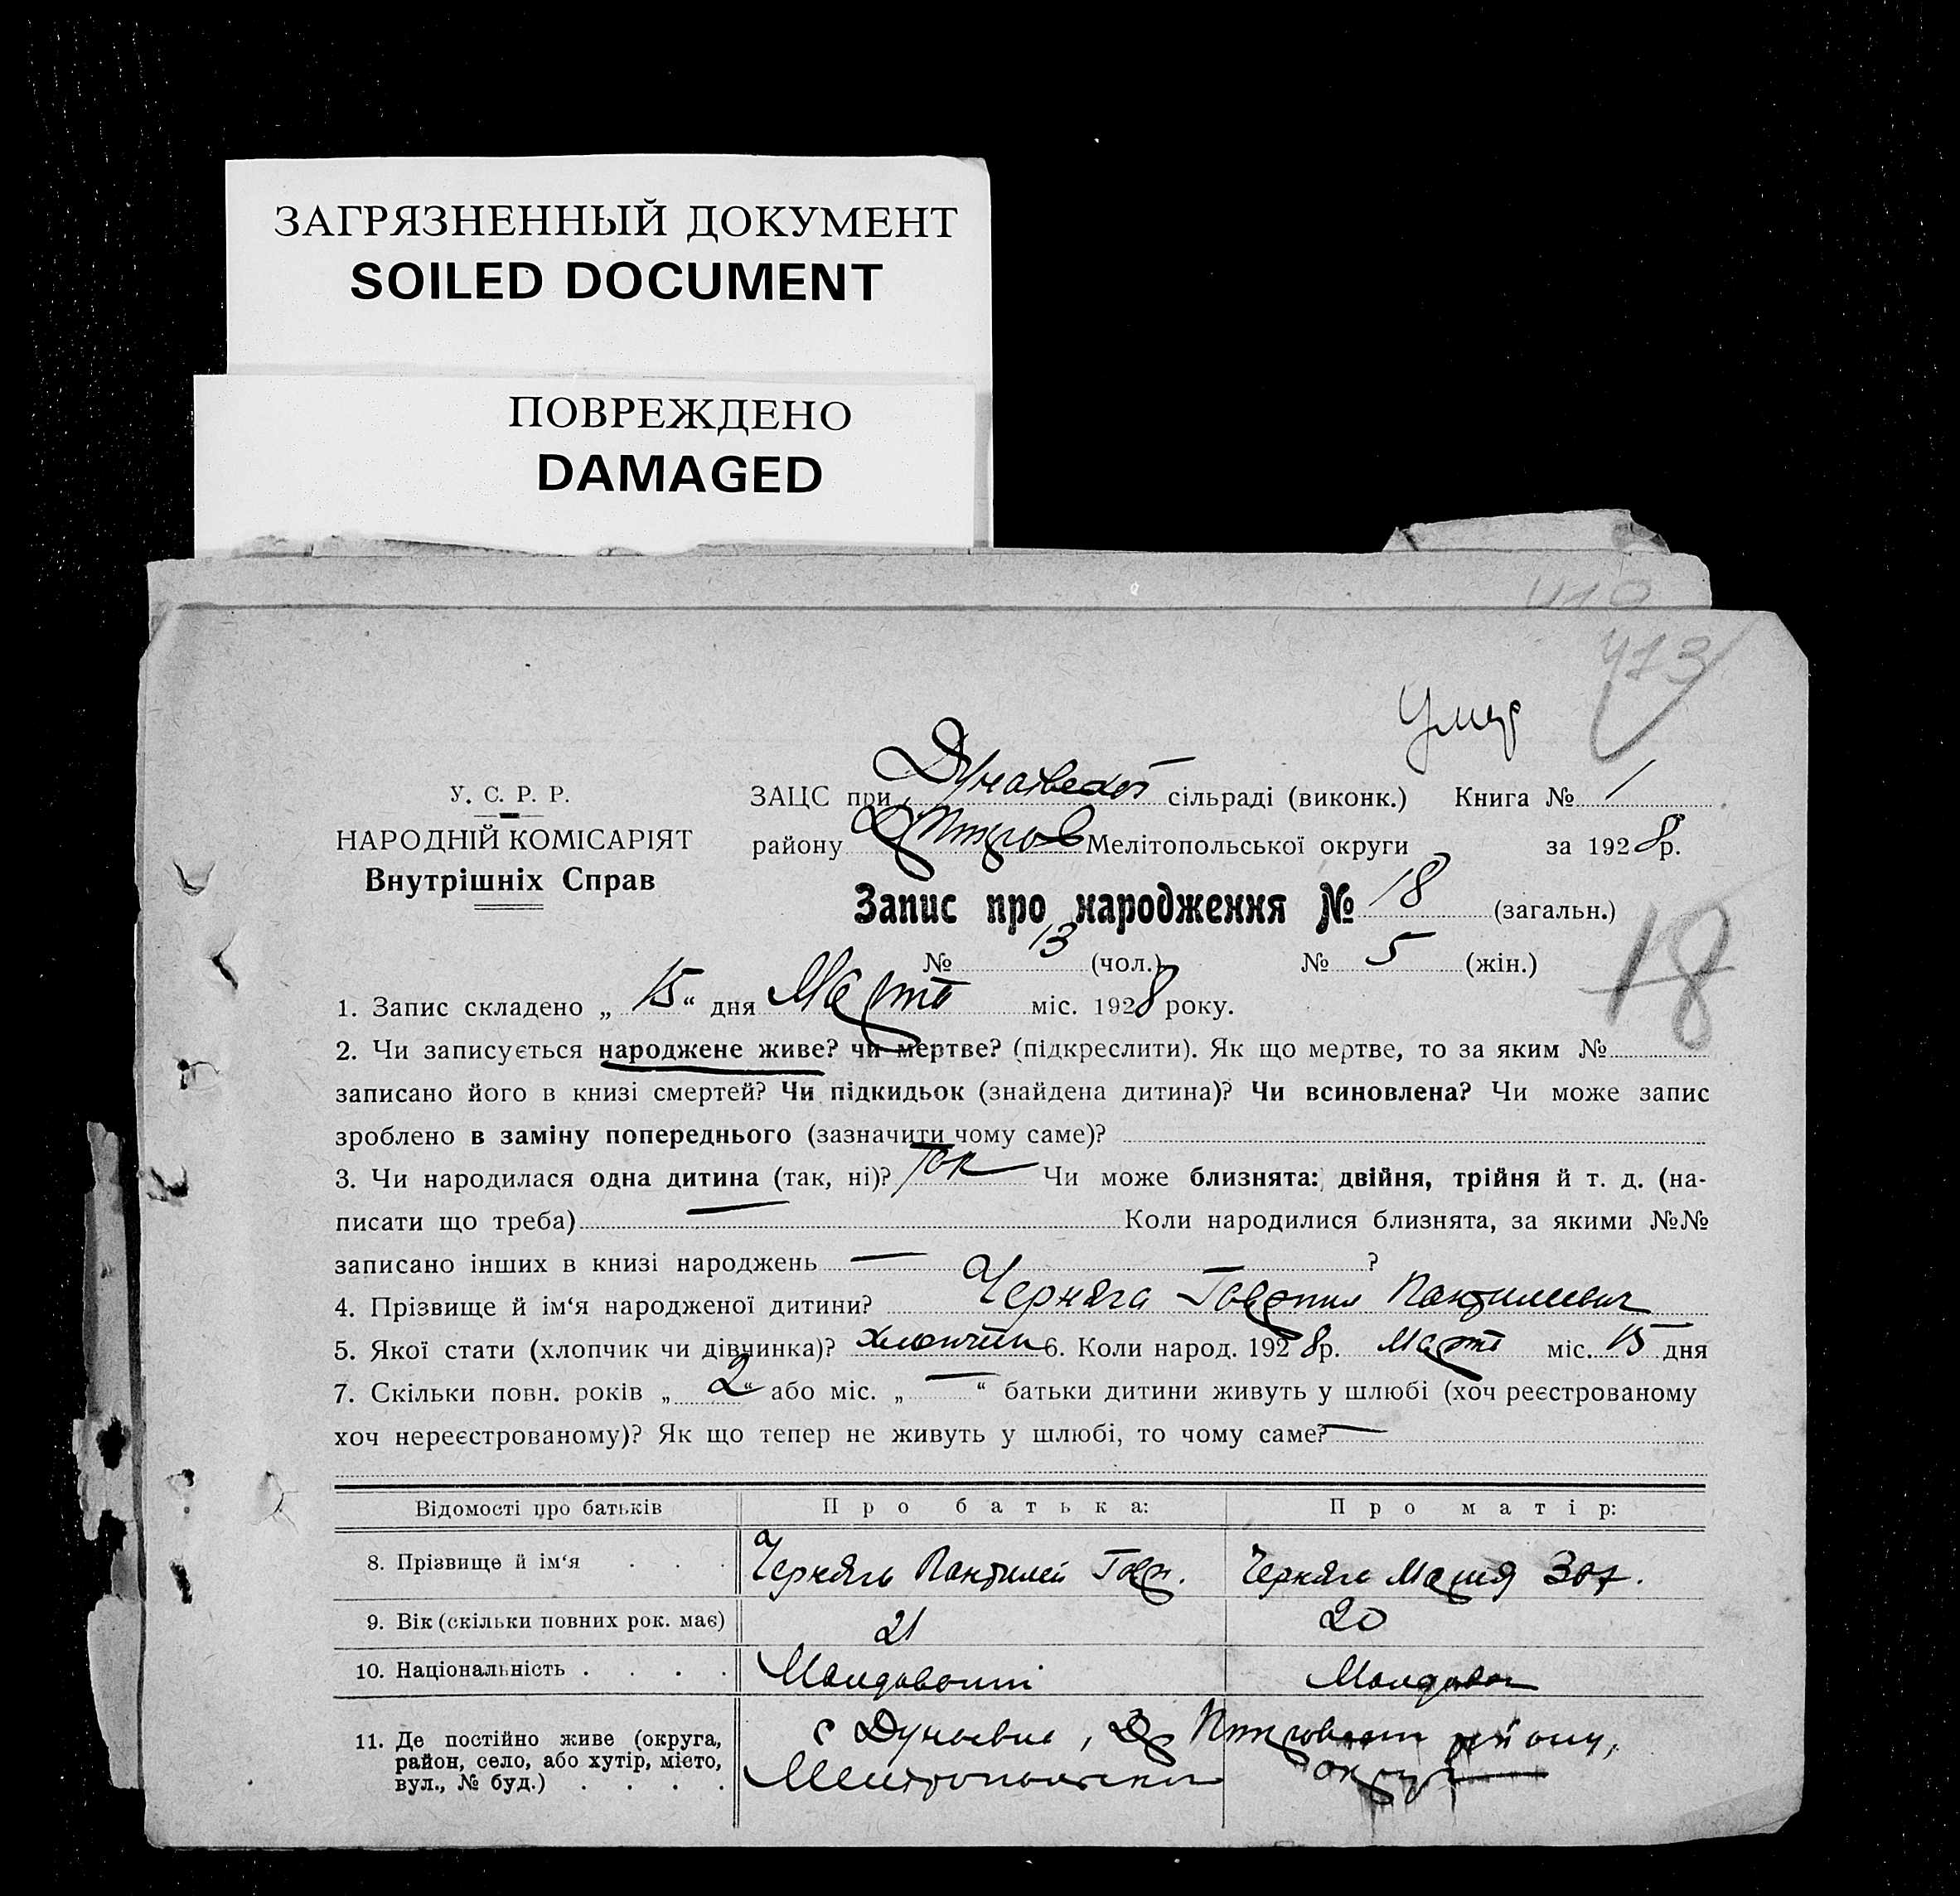 ЗАГРЯЗНЕННЫЙ ДОКУМЕНТ
SOILED DOCUMENT
ПОВРЕЖДЕНО
DAMAGED
413
Умер
У. С. Р. Р.
НАРОДНІЙ КОМІСАРІЯТ
Внутрішніх Справ
ЗАЦС при Дунаївской сільраді (виконк.) Книга № 1
району Мелітопольської округи за 1928р.
Запис про народження № 18 (загальн.)
18
№ 13 (чол.) № 5 (жін.)
1. Запис складено „ 15 “ дня Март міс. 1928 року.
2. Чи записується народжене живе? чи мертве? (підкреслити). Як що мертве, то за яким №
записано його в книзі смертей? Чи підкидьок (знайдена дитина)? Чи всиновлена? Чи може запис
зроблено в заміну попереднього (зазначити чому саме)?
3. Чи народилася одна дитина (так, ні)? Так Чи може близнята: двійня, трійня й т. д. (на-
писати що треба) Коли народилися близнята, за якими №№
записано інших в книзі народжень — ?
4. Прізвище й ім‘я народженої дитини? Черняга Гаврил
5. Якої стати (хлопчик чи дівчинка)? хлопчик 6. Коли народ. 1928р. Март міс. 15 дня
7. Скільки повн. років „ 2 “ або міс. „ — “ батьки дитини живуть у шлюбі (хоч реєстрованому
хоч нереєстрованому)? Як що тепер не живуть у шлюбі, то чому саме? —
Відомості про батьків Про батька: Про матір:
8. Прізвище й ім‘я . . . Черняга Пантилей Гавр. Черняга Мария
9. Вік (скільки повних рок. має) 21 20
10. Національність . . . . Молдован
11. Де постійно живе (округа,
район, село, або хутір, місто,
вул., № буд.) . . . .
с Дунаевка, району,
Мелитопольской округ